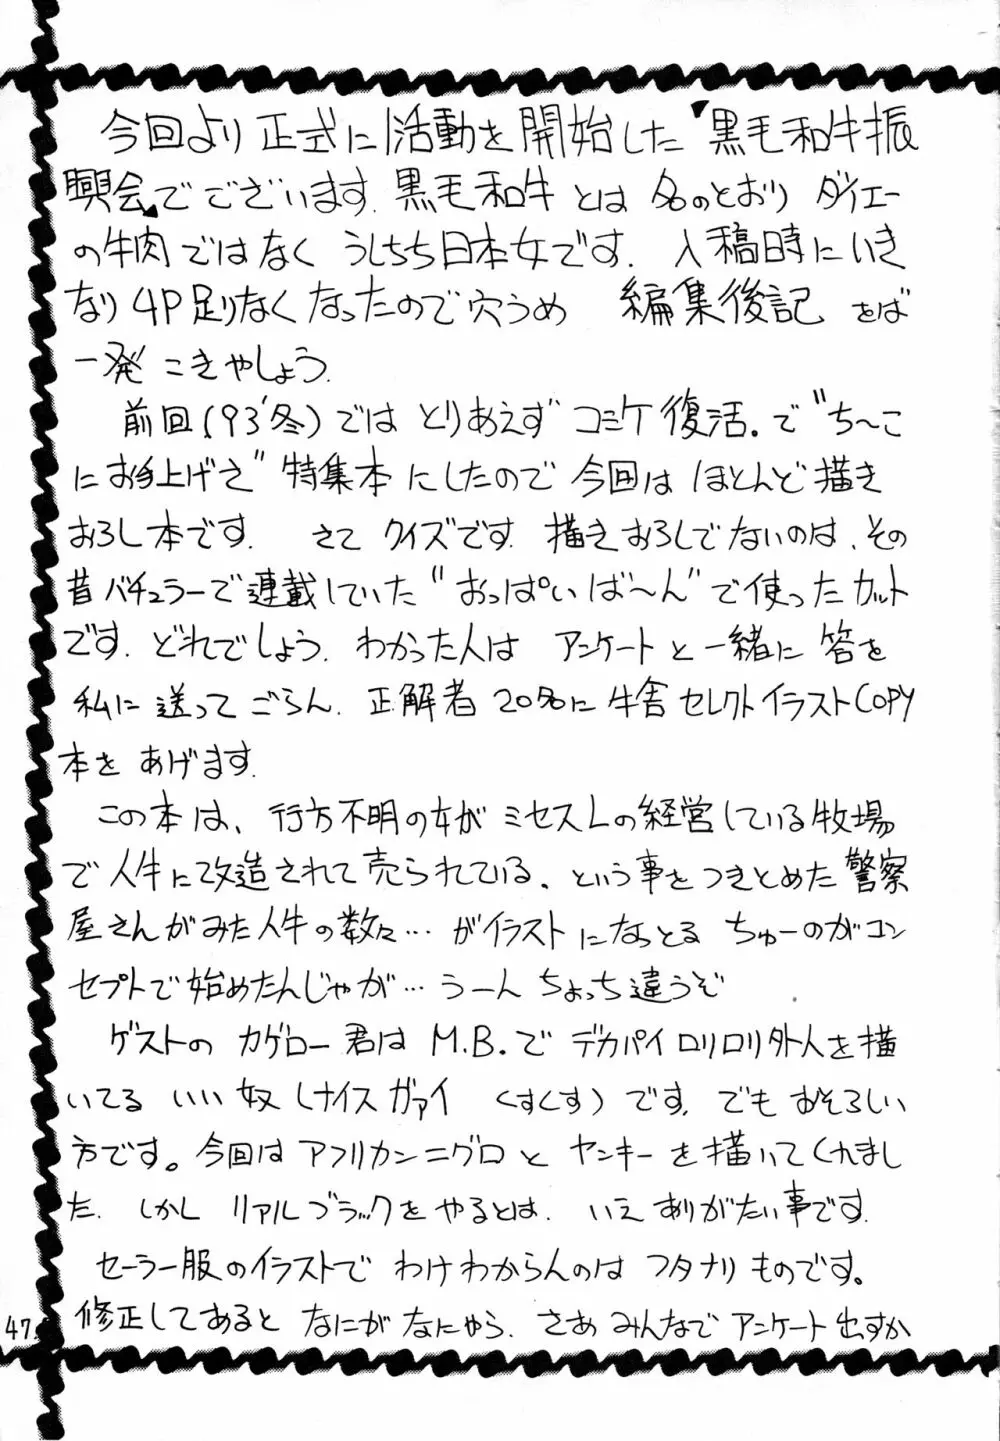 今回より正式に活動を開始した「黒毛和牛振
興会」でございます.黒毛和牛とは名のとおりダイエー
の牛肉ではなくうしちち日本女です.入稿時にいき
なり4P足りなくなったので穴うめ 編集後記をば
一発こきやしょう.
前回(93'冬)ではとりあえずコミケ復活.で"ち〜こ
にお手上げさ"特集本にしたので今回はほとんど描き
おろし本です. さてクイズです.描きおろしでないのは、その
昔バチェラーで連載していた"おっぱいば〜ん"で使ったカット
です.どれでしょう.わかった人は アンケートと一緒に答を
私に送ってごらん.正解者20名に牛舎セレクトイラストCOPY
本をあげます.
この本は、行方不明の女がミセスLの経営している牧場
で人牛に改造されて売られている、という事をつきとめた警察
屋さんがみた人牛の数々…がイラストになっとるちゅーのがコン
セプトで始めたんじゃが…うーんちょっち違うぞ
ゲストのカゲロー君はM.B.でデカパイロリロリ外人を描
いてるいい奴(ナイスガァイ くすくす)です.でもおそろしい
方です。今回はアフリカンニグロとヤンキーを描いてくれまし
た.しかしリアルブラックをやるとは.いえありがたい事です.
セーラー服のイラストでわけわからんのはフタナリものです。
修正してあるとなにがなにやら.さあみんなでアンケート出すか
47